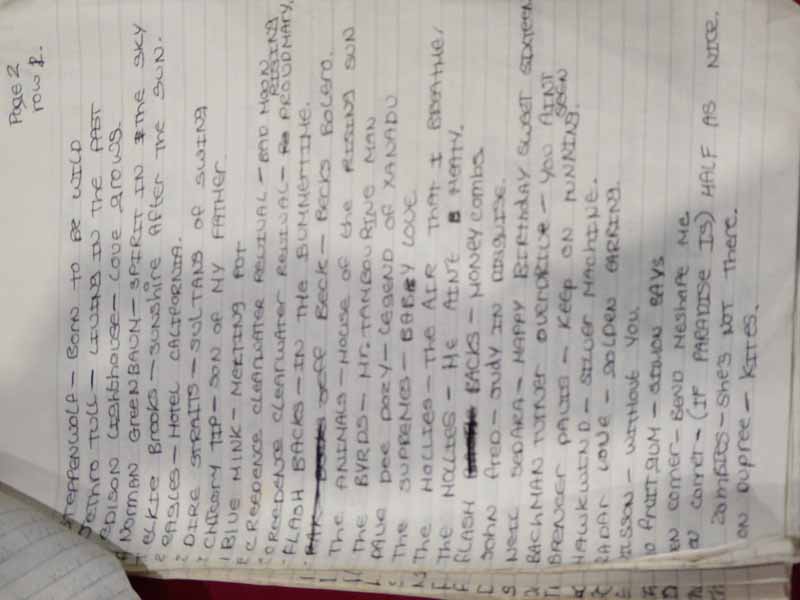 Page 2
row 1.
STEPPENWOLF - BORN TO BE WILD
JETHRO TULL - LIVING IN THE PAST
EDISON LIGHTHOUSE - LOVE grows.
NORMAN GREENBAUM - SPIRIT IN the SKY
ELKIE BROOKS - SUNSHINE AFTER THE SUN.
EAGLES - HOTEL CALIFORNIA.
DIRE STRAITS - SULTANS OF SWING
CHICORY TIP - SON OF MY FATHER
BLUE MINK - MELTING POT
CREEDENCE CLEARWATER REVIVAL - BAD MOON RISING
CREEDENCE CLEARWATER REVIVAL - PROUDMARY.
FLASH BACKS - IN THE SUMMERTIME.
JEFF BECK - BECKS BOLERO.
THE ANIMALS - HOUSE OF the RISING SUN
THE BYRDS - Mr. TAMBOURINE MAN
DAVE DEE DOZY - LEGEND OF XANADU
THE SUPREMES - BABY LOVE
THE HOLLIES - THE AIR THAT I BREATHE,
THE HOLLIES - HE AINT HEAVY.
FLASH BACKS - HONEY COMBS
JOHN FRED - JUDY IN DISGUISE.
NEIL SEDARA - HAPPY BIRTHDAY SWEET SIXTEEN
BACHMAN TURNER OVERDRIVE - YOU AINT SEEN
SPENCER DAVIS - KEEP ON RUNNING.
HAWKWIND - SILVER MACHINE.
RADAR LOVE - GOLDEN EARRING.
WITHOUT YOU.
FRUIT GUM - SIMON SAYS
COMER - BEND MESHAPE ME
CORNER - (IF PARADISE IS) HALF AS NICE.
ZOMBIES - SHE'S NOT THERE.
ON DUPREE - KITES.